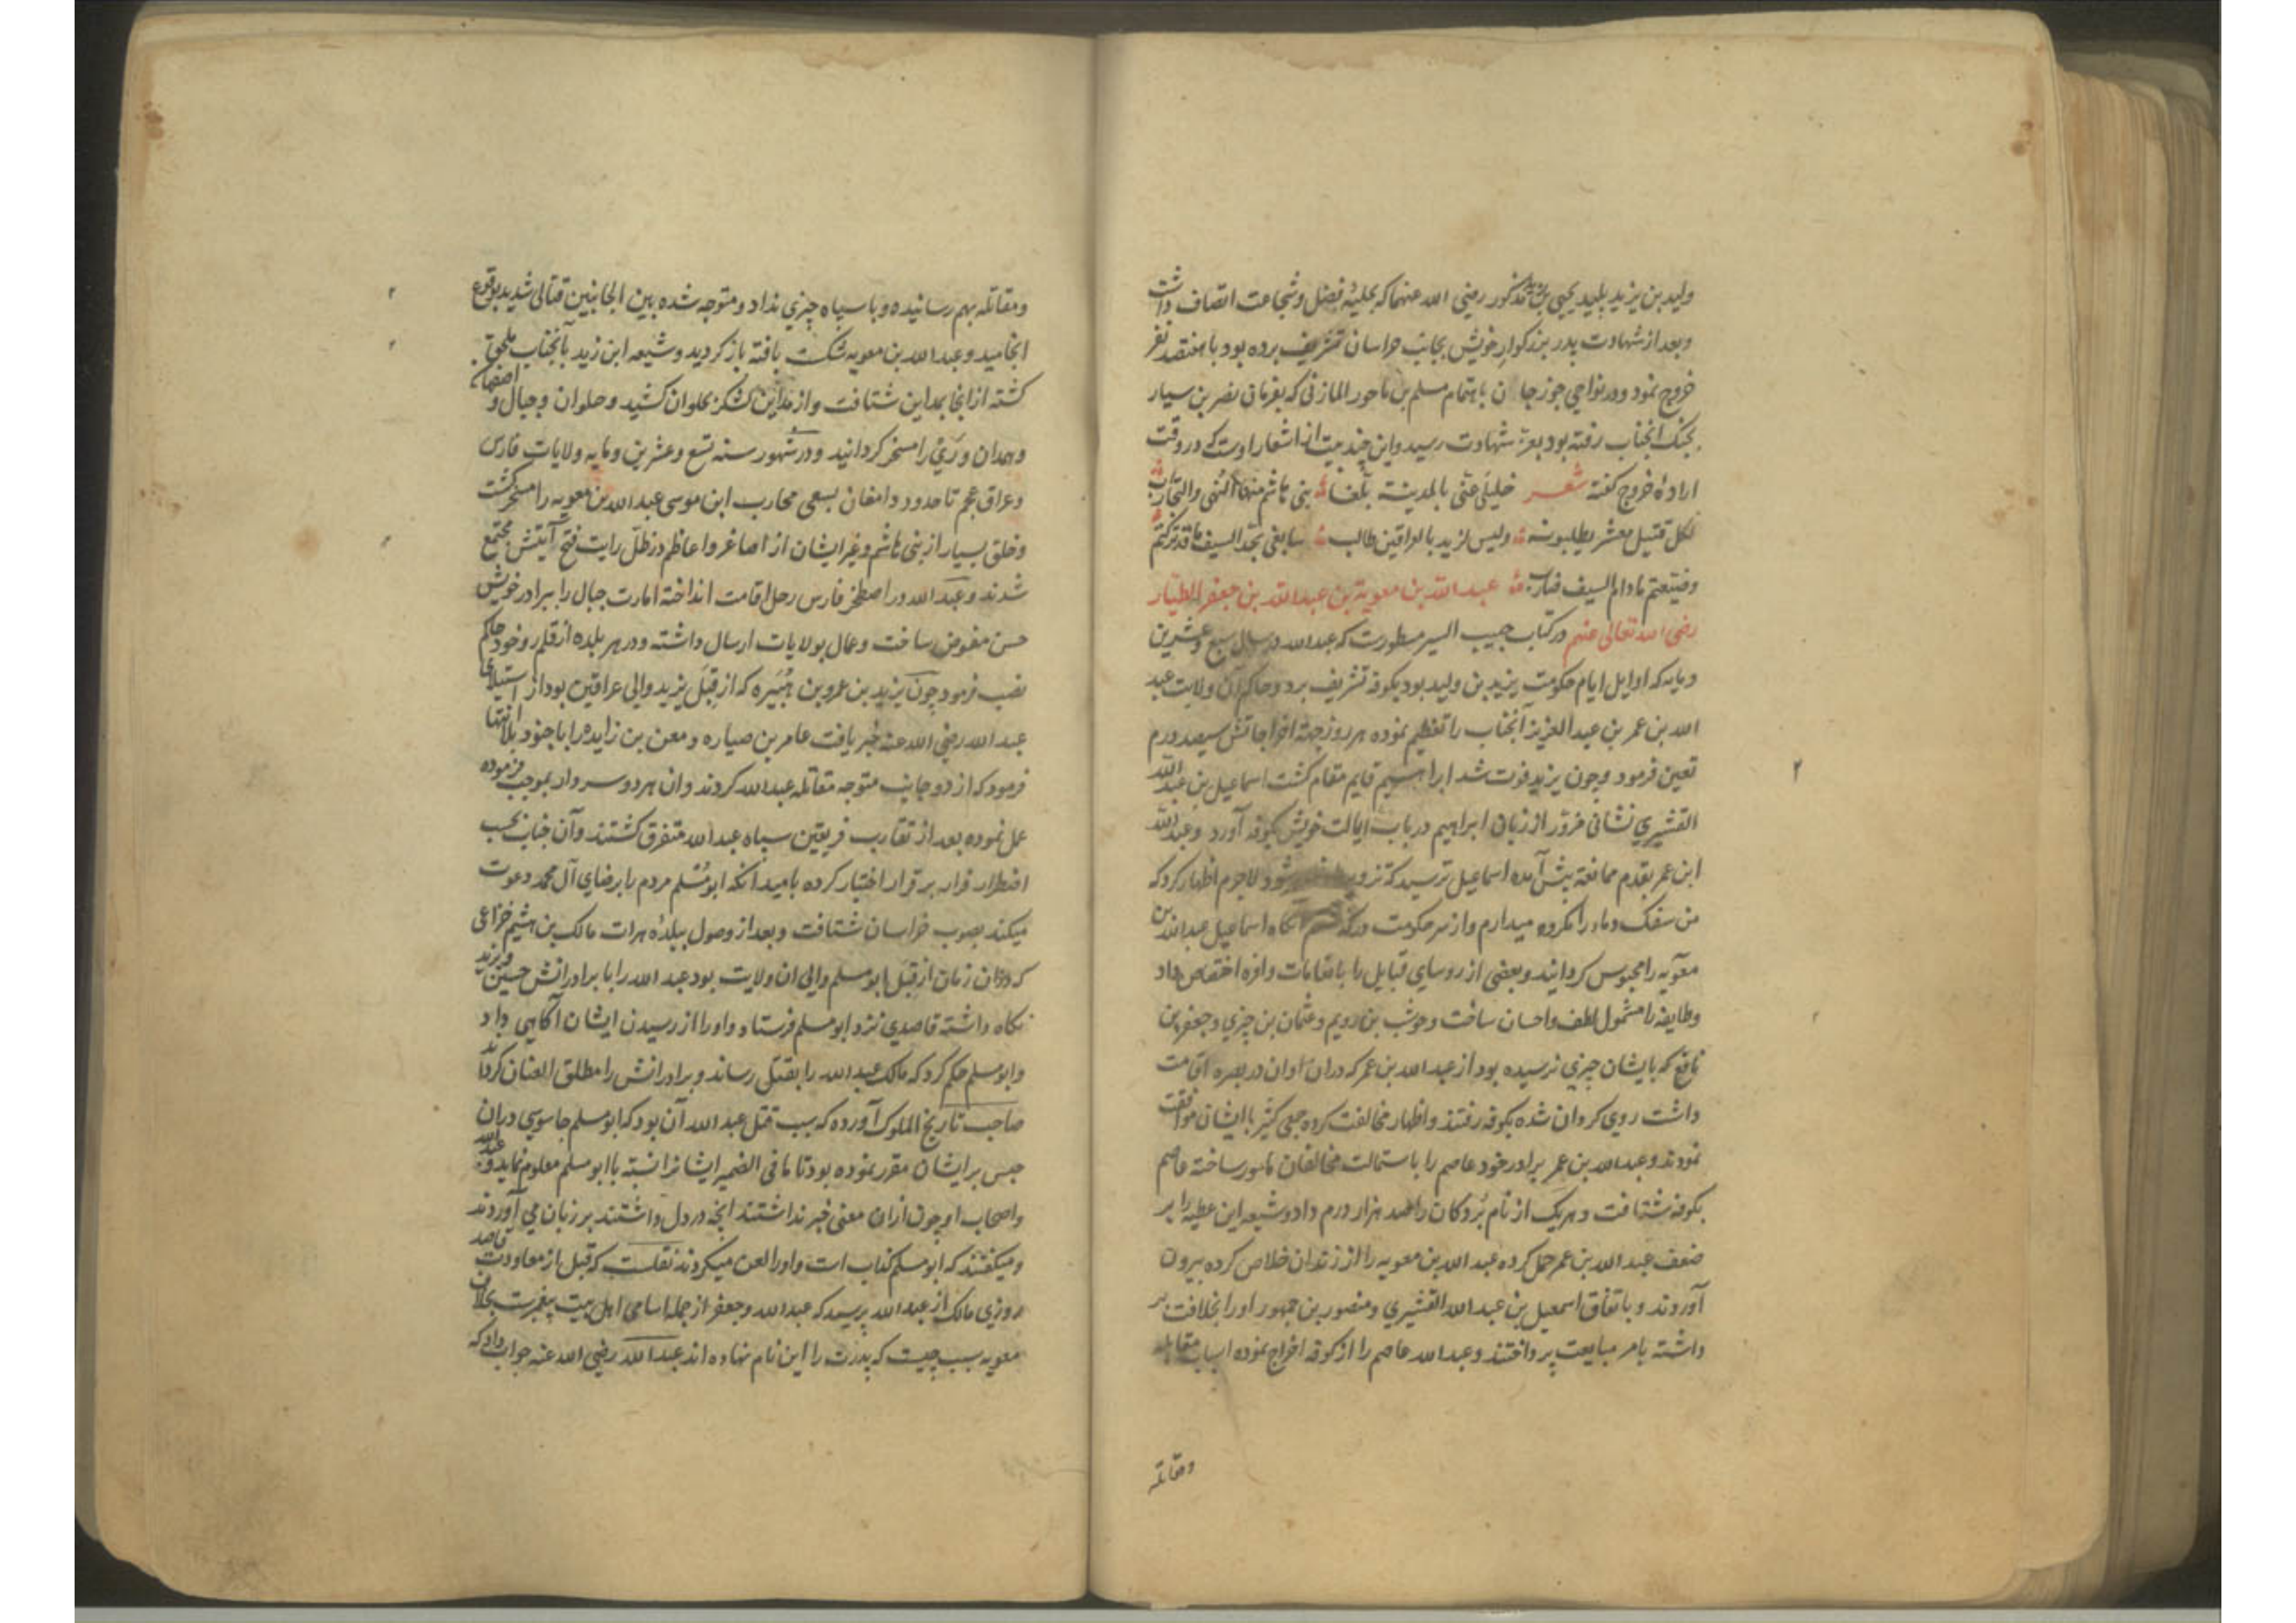 ولید بن یزید پلید یحیی بن زید مذکور رضی الله عنهما که بحلیهٔ فضل و شجاعت اتصاف داشت
و بعد از شهادت پدر بزرکوار خویش بجانب خراسان تشریف برده بود با هفتصد نفر
خروج نمود و در نواحی جوزجان باهتمام مسلم بن ماحور المازنی که بفرمان نصر بن سیار
بجنک آنجناب رفته بود بعز شهادت رسید و این چند بیت از اشعار اوست که در وقت
ارادهٔ خروج کفته شعر خلیلی عنی بالمدینة بلغا بنی هاشم منها النهی والتجارب
لکل قتیل معشر یطلبونه ولیس لزید بالعراقین طالب
مادام السیف عبد الله بن معویة بن عبد الله بن جعفر الطیار
رضی الله تعالی عنهم در کتاب حبیب السیر مسطورست که عبد الله در سال سبع و عشرین
و مایه که اوایل ایام حکومت یزید بن ولید بود بکوفه تشریف برد و حاکم آن ولایت عبد
الله بن عمر بن عبد العزیز آنجناب را تعظیم نموده هر روز جهة اخراجاتش سیصد درم
تعین فرمود و چون یزید فوت شد ابراهیم قایم مقام کشت اسماعیل بن عبد الله
القشیری نشانی مزوّر از زبان ابراهیم در باب ایالت خویش بکوفه آورد و عبد الله
ابن عمر بقدم ممانعة پیش آمده اسماعیل ترسید که تزویر شود لاجرم اظهار کرد که
من سفک دماء را مکروه میدارم و از سر حکومت درکذشتم آنکاه اسماعیل عبد الله بن
معویه را محبوس کردانید و بعضی از روسای قبایل را بانعامات وافره اختصاص داد
و طایفه را مشمول لطف و احسان ساخت و حوشب بن رویم و عثمان بن چیزی و جعفر بن
نافع که بایشان چیزی نرسیده بود از عبد الله بن عمر که دران اوان در بصره اقامت
داشت روی کردان شده بکوفه رفتند و اظهار مخالفت کرده جمعی کثیر با ایشان موافقت
نمودند و عبد الله بن عمر برادر خود عاصم را باستمالت مخالفان مامور ساخته عاصم
بکوفه شتافت و هر یک از نام بردکان را صد هزار درم داد و شیعه این عطیه را بر
ضعف عبد الله بن عمر حمل کرده عبد الله بن معویه را از زندان خلاص کرده بیرون
آوردند و باتفاق اسمعیل بن عبد الله القشیری و منصور بن جمهور اورا بخلافت بر
داشته بامر مبایعت پرداختند و عبد الله عاصم را از کوفه اخراج نموده اسباب مقابله
ومقاتله
و مقاتله بهم رسانیده و با سپاه چیزی نداد و متوجه شده بین الجانبین قتالی شدید بوقوع
انجامید و عبد الله بن معویه شکست یافته باز کردید و شیعه ابن زید بآنجناب ملحق
کشته از انجا بمداین شتافت و از مداین لشکر بحلوان کشید و حلوان و جبال و اصفهان
و همدان و ری را مسخر کردانید و در شهور سنه تسع و عشرین و مایه ولایات فارس
و عراق عجم تا حدود دامغان بسعی محارب ابن موسی عبد الله بن معویه را مسخر کشت
و خلق بسیار از بنی هاشم و غیر ایشان از اصاغر و اعاظم در ظلّ رایت فتح آیتش مجتمع
شدند و عبد الله در اصطخر فارس رحل اقامت انداخته امارت جبال را ببرادر خویش
حسن مفوض ساخت و عمال بولایات ارسال داشته و در هر بلده از قلمرو خود حاکم
نصب فرمود چون یزید بن عمرو بن هُبَیره که از قِبَل یزید والی عراقین بود از استیلای
عبد الله رضی الله عنه خبر یافت عامر بن صیاره و معن بن زایده را با جنود بلا انتها
فرمود که از دو جانب متوجه مقاتله عبد الله کردند و ان هر دو سردار بموجب فرموده
عمل نموده بعد از تقارب فریقین سپاه عبد الله متفرق کشتند و آن جناب بحسب
اضطرار فرار بر قرار اختیار کرده بامید آنکه ابو مُسلم مردم را برضای آل محمد دعوت
میکند بصوب خراسان شتافت و بعد از وصول ببلدهٔ هرات مالک بن هشیم خزاعی
که دران زمان از قِبَل ابو مسلم والی ان ولایت بود عبد الله را با برادرانش حسین و یزید
نکاه داشته قاصدی نزد ابو مسلم فرستاد و اورا از رسیدن ایشان آکاهی داد
و ابو مسلم حکم کرد که مالک عبد الله را بقتل رساند و برادرانش را مطلق العنان کرداند
صاحب تاریخ الملوک آورده که سبب قتل عبد الله آن بود که ابو مسلم جاسوسی دران
حبس بر ایشان مقرر نموده بود تا ما فی الضمیر ایشانرا نسبة با ابو مسلم معلوم نماید و عبد الله
و اصحاب او چون ازان معنی خبر نداشتند آنچه در دل داشتند بر زبان می آوردند
و میکفتند که ابو مسلم کذاب است و اورا لعن میکردند نقلست که قبل از معاودت قاصد
روزی مالک از عبد الله پرسید که عبد الله و جعفر از جمله اسامی اهل بیت پیغمبرست بخلاف
معویه سبب چیست که پدرت را این نام نهاده اند عبد الله رضی الله عنه جواب داد که